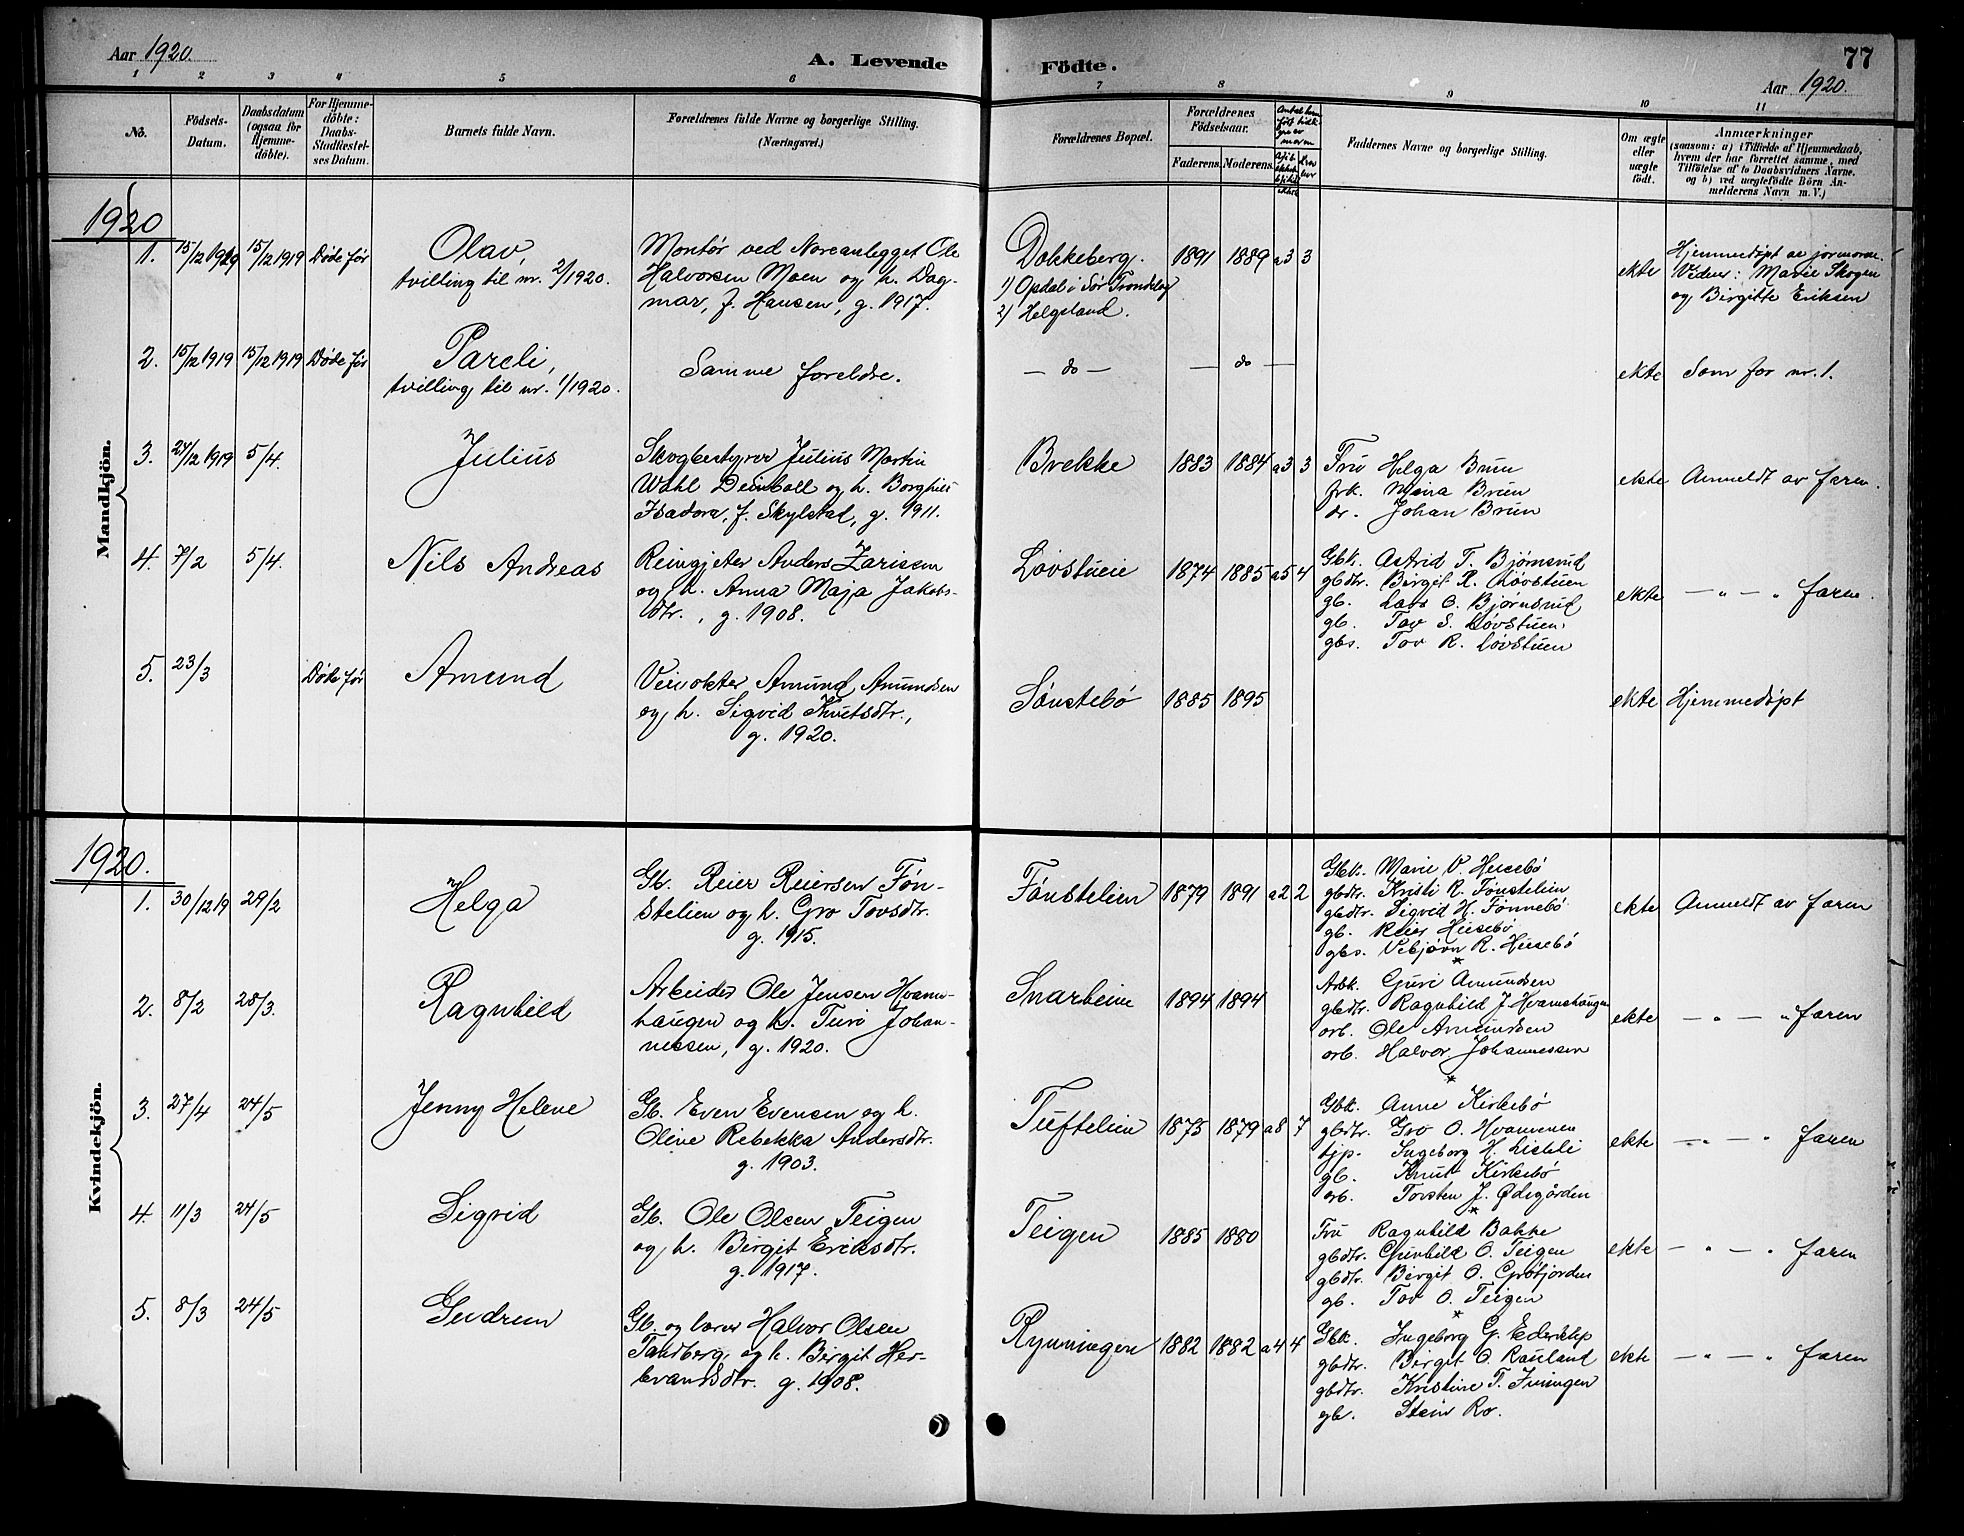 Aar 1920.
A. Levende Födte.
77
Aar 1920.
1 2 3 4 5 6 7 8 9 10 11
No.
Födsels-Datum.
Daabsdatum (ogsaa for Hjemme-döbte).
For Hjemme-döbte: Daabs-Stadfæstel-ses Datum.
Barnets fulde Navn.
Forældrenes fulde Navne og borgerlige Stilling.
(Næringsvei.)
Forældrenes Bopæl.
Forældrenes Födselsaar.
Faderens. Moderens.
Faddernes Navne og borgerlige Stilling.
Om ægte eller uægte födt.
Anmærkninger
(saasom: a) i Tilfælde af Hjemmedaab, hvem der har forrettet samme, med Tilföielse af to Daabsvidners Navne. og b) ved uægtefödte Börn An-melderens Navn m. V.)
Mandkjön.
1920
1. 15/12 1919 15/12 1919 Døde før
Olav,
tvilling til nr. 2/1920.
Montør ved Noreanlegget Ole
Halvorsen Moen og h. Dag-
mar, f. Hansen, g. 1917.
Dokkeberg.
1) Opdal i Sør Trondelag
2) Helgeland.
1891 1889 a3 3
ekte
Hjemmedøpt av jormoren.
Vidner: Marie Skogen
og Birgitte Eriksen
2. 15/12 1919 15/12 1919 Døde før
Pareli,
tvilling til nr. 1/1920.
Samme foreldre.
— do — — do —
ekte Som for nr. 1.
3. 24/12 1919 5/4.
Julius
Skogbestyrer Julius Martin
Wahl Deinboll og h. Borghild
Isadora, f. Skylstad, g. 1911.
Brekke 1883 1884 a3 3
Fru Helga Bruun
frk. Maria Brun
dr. Johan Brun
ekte Anmeldt av faren.
4. 7/2 5/4.
Nils Andreas
Reingjeter Anders Zarissen
og h. Anna Maja Jakobs-
dtr., g. 1908.
Løvstuen 1874 1885 a5 4
Gbk. Astrid T. Bjørnsrud
gbdtr. Birgit R. Løvstuen
gb. Lars O. Bjørnsrud
gb. Tov S. Løvstuen.
gbs. Tov R. Løvstuen
ekte — „ — „ faren.
5. 23/3 Døde før
Amund
Veivokter Amund Amundsen
og h. Sigrid Knutsdtr.,
g. 1920.
Sønstebø 1885 1895
ekte Hjemmedøpt
Kvindekjön.
1920.
1. 30/12 19 29/2
Helga
Gb. Reier Reiersen Føn-
stelien og h. Gro Tovsdtr.
g. 1915.
Fønstelien 1879 1891 a2 2
Gbk. Marie O. Husebø
gbdtr. Kristi R. Fønstelien
gbdtr. Sigrid H. Fønnebø
gb. Reier Husebø
gbs. Vebjørn R. Husebø
ekte Anmeldt av faren
2. 8/2 28/3.
Ragnhild
Arbeider Ole Jensen Hvams-
haugen og h. Turi Johan-
nessen, g. 1920.
Snarheim 1894 1894
Arbk. Guri Amundsen
gbdtr. Ragnhild J. Hvamshaugen
arb. Ole Amundsen
arb. Halvor Johannessen
ekte — „ — „ faren
3. 27/4 24/5
Jenny Helene
Gb. Even Evensen og h.
Oline Rebekka Andersdtr.
g. 1903.
Tuftelien 1875 1879 a8 7
Gbk. Anne Kirkebø
gbdtr. Gro O. Hvammen
tjp. Ingeborg H. Lisleli
gb. Knut Kirkebø
arb. Torsten J. Ødegården
ekte — „ — „ faren
4. 11/3 24/5
Sigrid
Gb. Ole Olsen Teigen
og h. Birgit Eriksdtr.
g. 1917.
Teigen 1885 1880
Fru Ragnhild Bakke
gbdtr. Gunhild O. Teigen
gbdtr. Birgit O. Grøtjorden
gb. Tov O. Teigen
ekte — „ — „ faren
5. 8/3 24/5
Gudrun
Gb. og lærer Halvor Olsen
Tandberg og h. Birgit Her-
brandsdtr. g. 1908.
Rynningen 1882 1882 a4 4
Gbk. Ingeborg G. Ederklep
gbdtr. Birgit O. Rauland
gbdtr. Kristine T. Juningen
gb. Stein Ro.
ekte — „ — „ faren